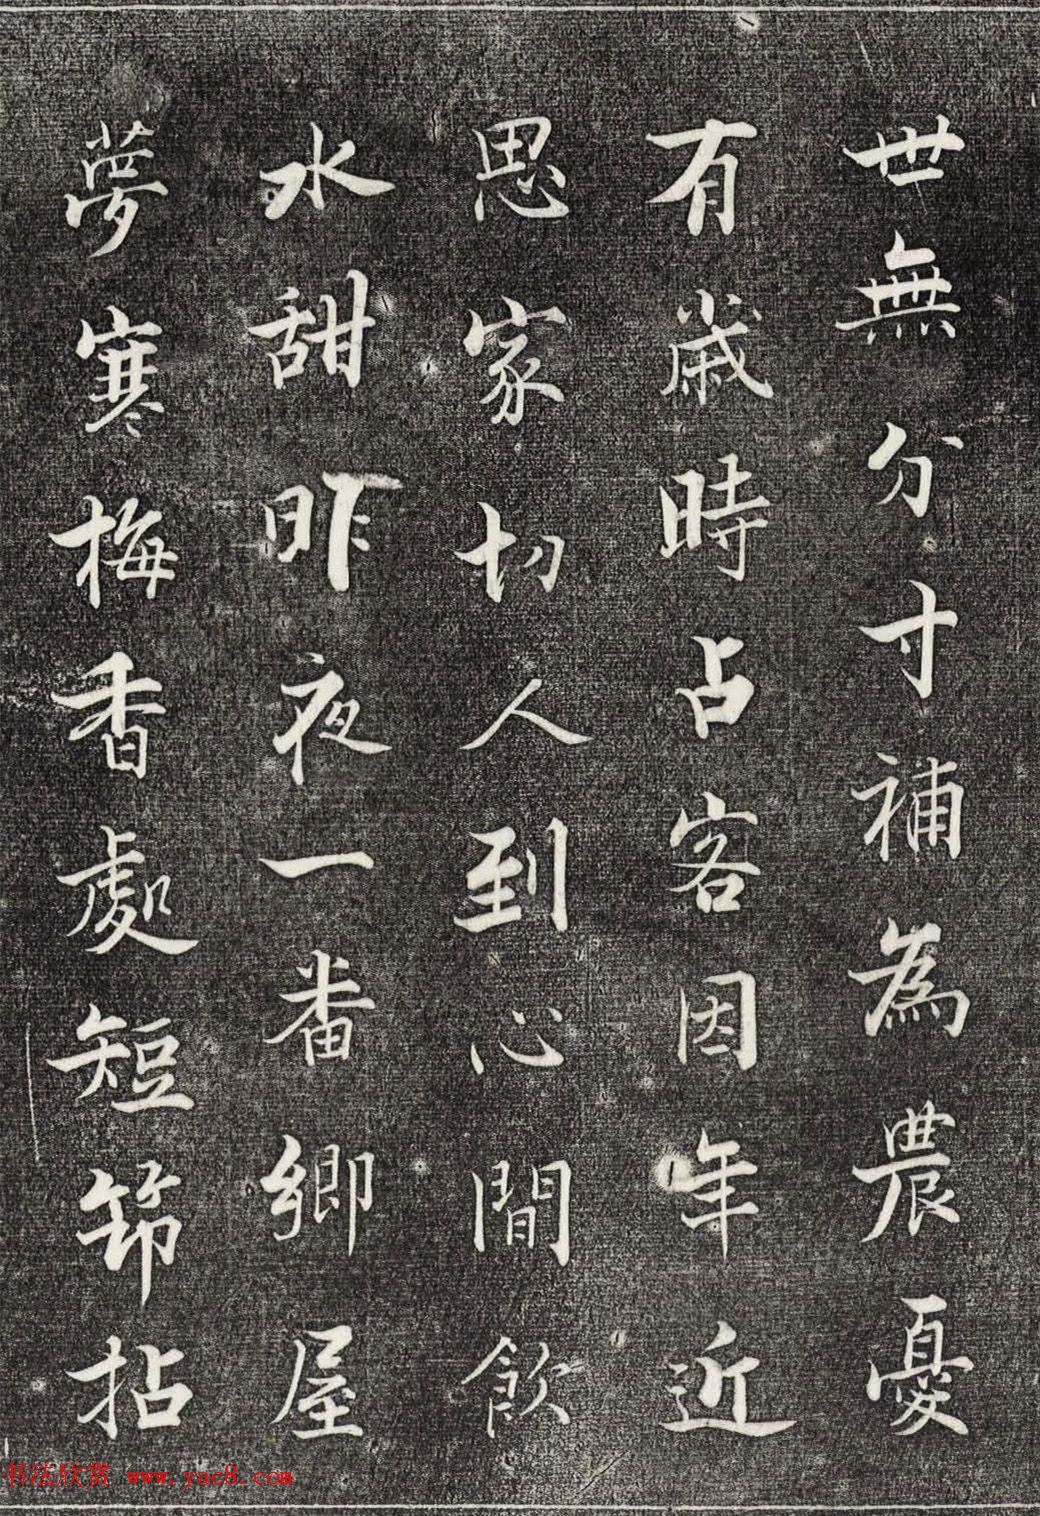 世無分寸補為農憂
有歲時占客因年近
思家切人到心間飲
水甜昨夜一番鄉屋
夢寒梅香處短笻拈
书法欣赏 www.yac8.com